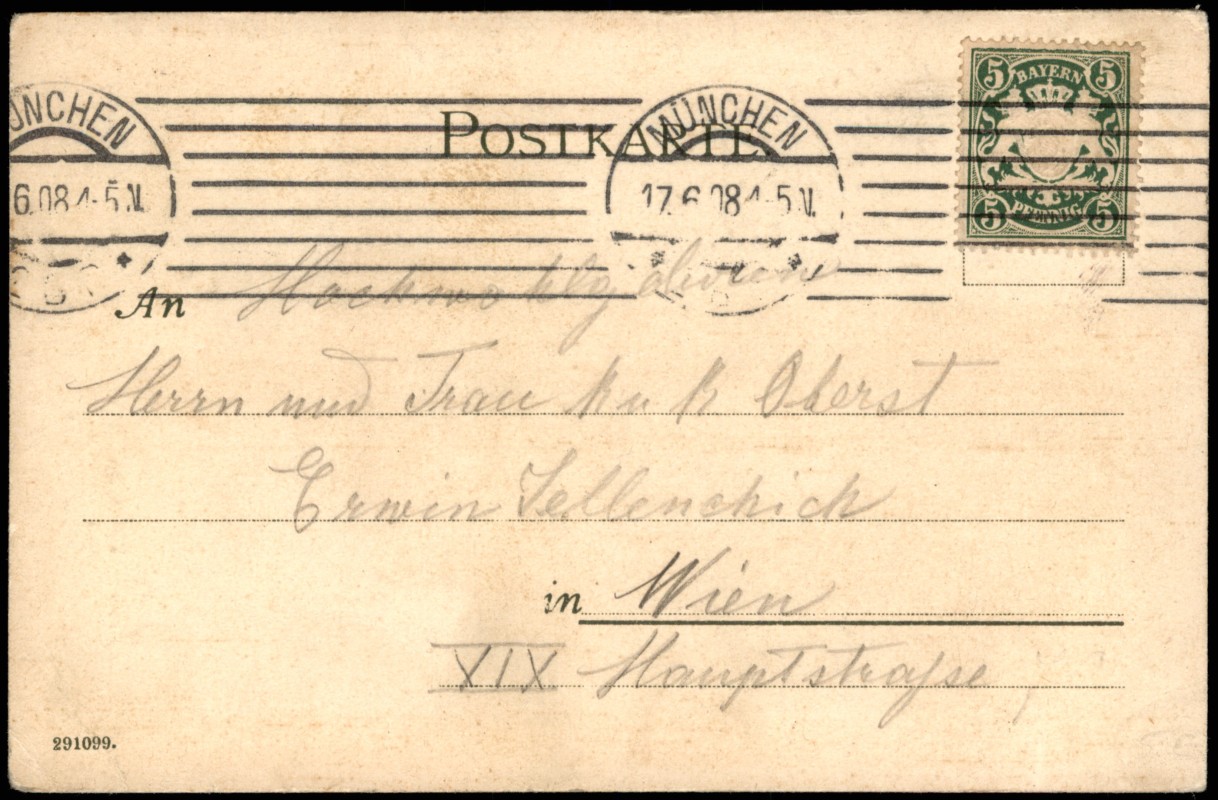 5 BAYERN 5
MÜNCHEN
POSTKARTE.
MÜNCHEN
6.08 4-5 N.
17.6.08 4-5 N.
5 PFENNIG 5
An Hochwohlgeboren
Herrn und Frau k u k Oberst
Erwin
in Wien
XIX Hauptstraße
291099.